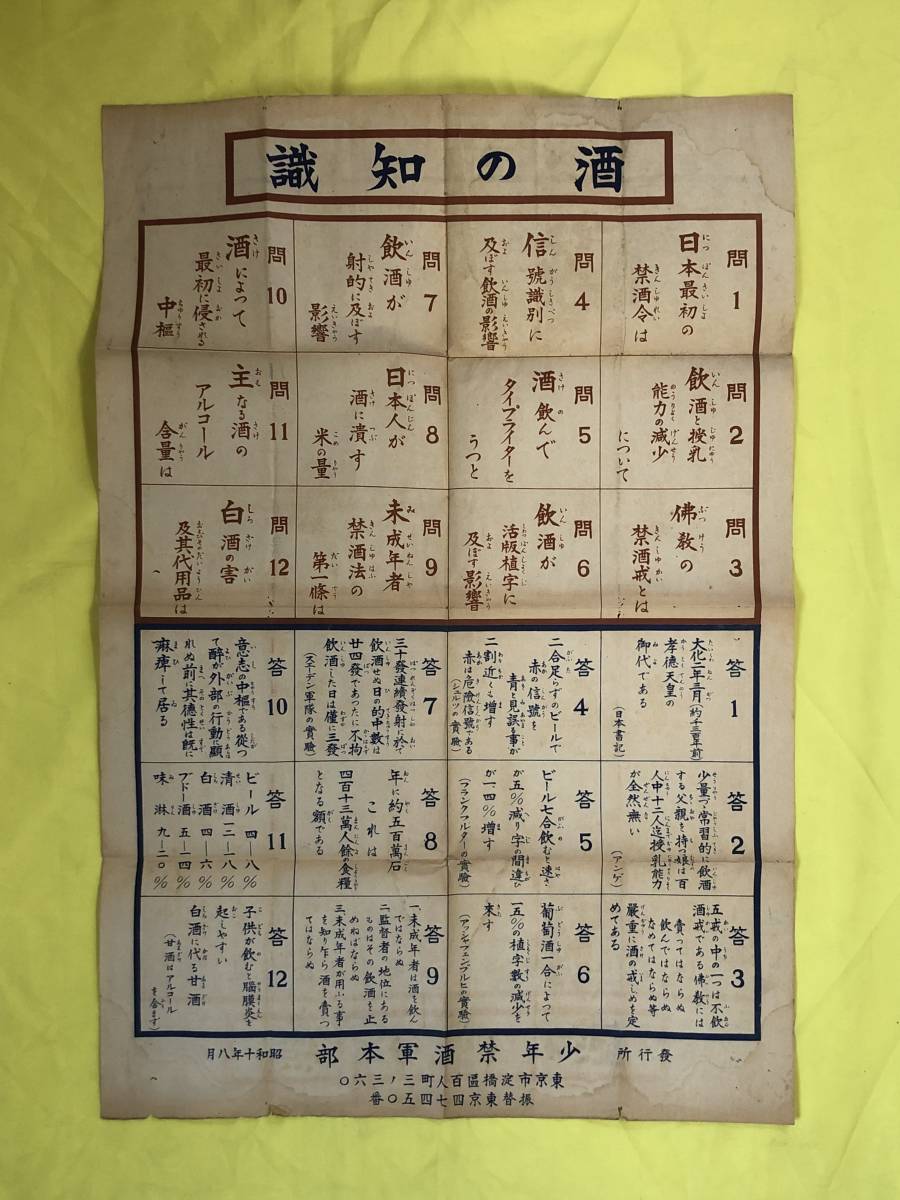 酒の知識
問1
日本最初の
禁酒令は
問2
飲酒と授乳
能力の減少
について
問3
佛教の
禁酒戒とは
問4
信號識別に
及ぼす飲酒の影響
問5
酒飲んで
タイプライターを
うつと
問6
飲酒が
活版植字に
及ぼす影響
問7
飲酒が
射的に及ぼす
影響
問8
日本人が
酒に潰す
米の量
問9
未成年者
禁酒法の
第一條は
問10
酒によつて
最初に侵される
中樞
問11
主なる酒の
アルコール
含量は
問12
白酒の害
及其代用品は
答1
大化二年三月(約千三百年前)
孝德天皇の
御代である
(日本書記)
答2
少量づゝ常習的に飲酒
する父親を持つ娘は百
人中十二人迄授乳能力
が全然無い
(アンゲ)
答3
五戒の中の一つは不飲
酒戒である佛教には
賣つてはならぬ
飲んではならぬ
なめてはならぬ等
嚴重に酒の戒しめを定
めてある
答4
二合足らずのビールで
赤の信號を
青と見誤る事が
二割近くも増す
赤は危險信號である
(シュルツの實驗)
答5
ビール七合飲むと速さ
が五%減り字の間違ひ
が一、四%増す
(フランクフルターの實驗)
答6
葡萄酒一合によつて
一五%の植字數の減少を
來す
(アッシャフェンブルヒの實驗)
答7
三十發連續發射に於て
飲酒せぬ日の的中數は
廿四發であつたに不拘
飲酒した日は僅に三發
(スエーデン軍隊の實驗)
答8
年に約五百萬石
これは
四百十三萬人餘の食糧
となる額である
答9
一、未成年者は酒を飲ん
ではならぬ
二、監督者の地位にある
ものはその飲酒を止
めねばならぬ
三、未成年者が用ふる事
を知り乍ら酒を賣つ
てはならぬ
答10
意志の中樞である從つ
て醉が外部の行動に顯
れぬ前に其德性は既に
麻痺して居る
答11
ビール 四―八%
清酒 一二―一八%
白酒 四―六%
ブドー酒 五―一四%
味淋 九―二〇%
答12
子供が飲むと腦膜炎を
起しやすい
白酒に代る甘酒
(甘酒はアルコール
を含まず)
發行所 少年禁酒軍本部 昭和十年八月
東京市淀橋區百人町三ノ三六〇
振替東京四七四五〇番